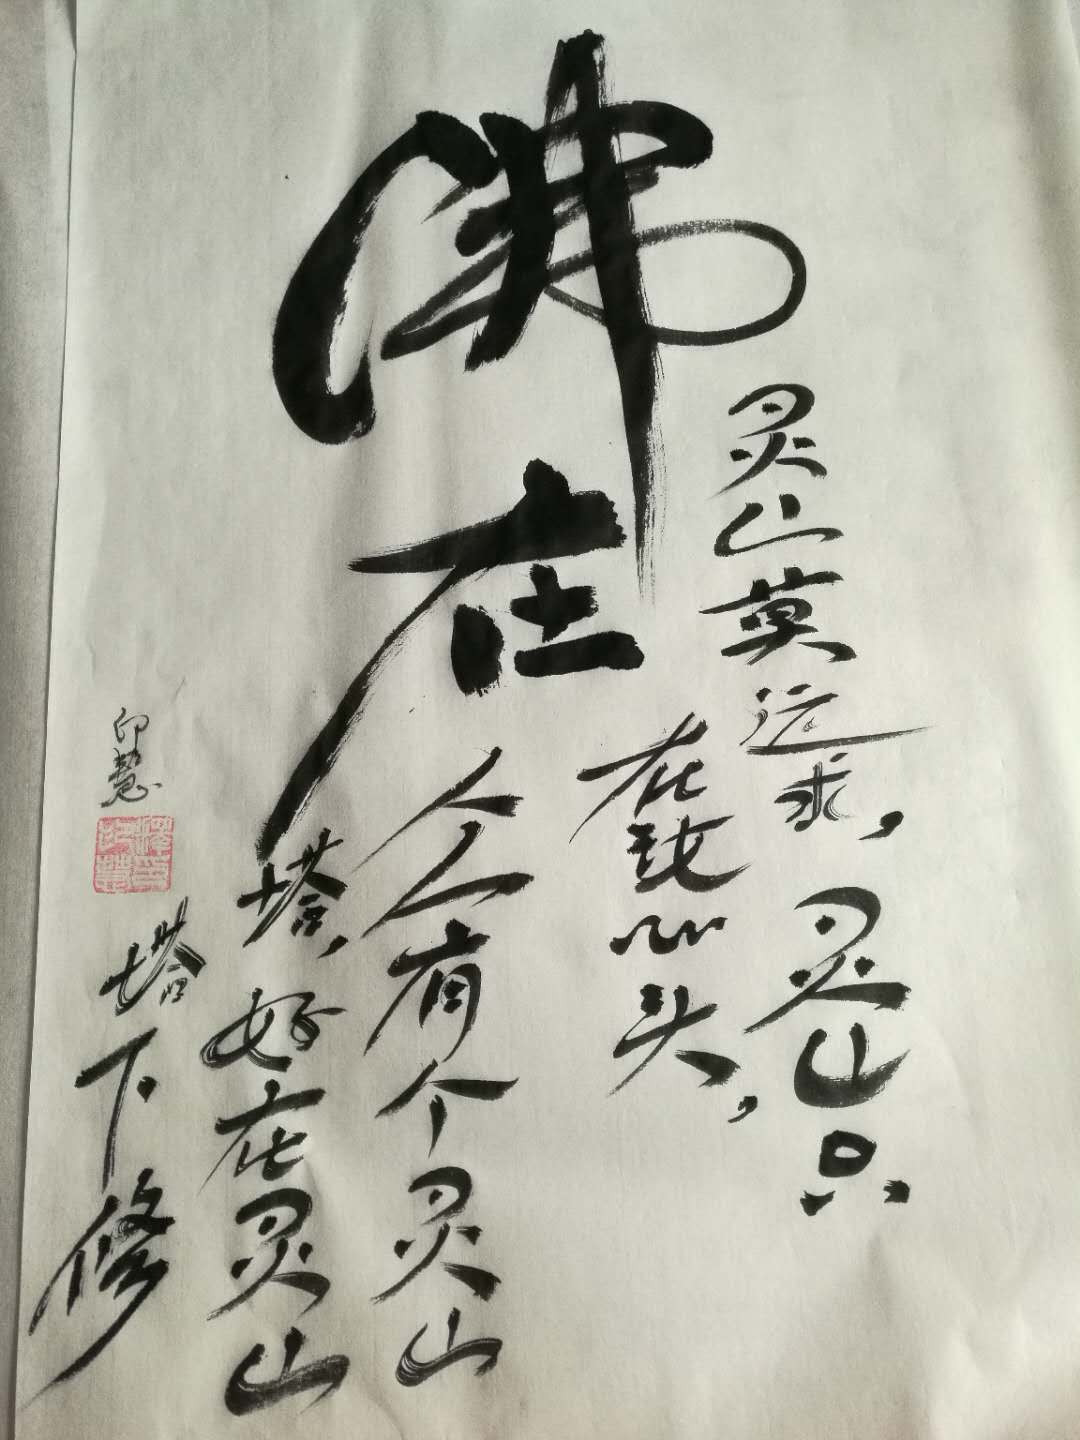 佛在
灵山莫远求,灵山只
在汝心头,
人人有个灵山
塔,好在灵山
塔下修
印慧